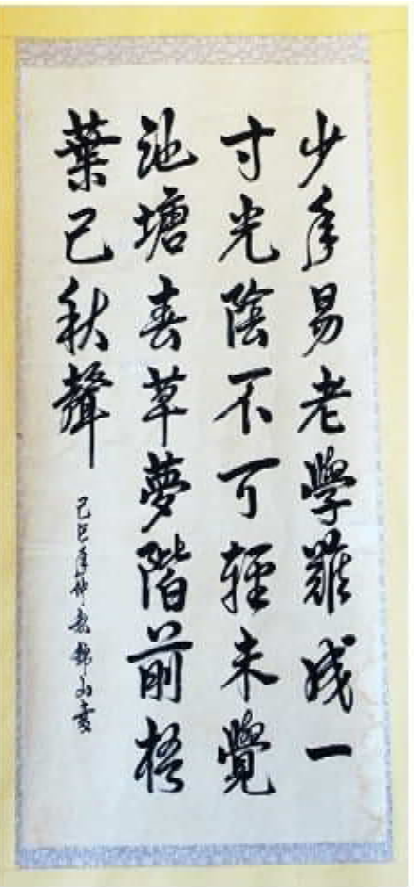 少年易老學難成一
寸光陰不可輕未覺
池塘春草夢階前梧
葉已秋聲
己巳年仲春錦山書